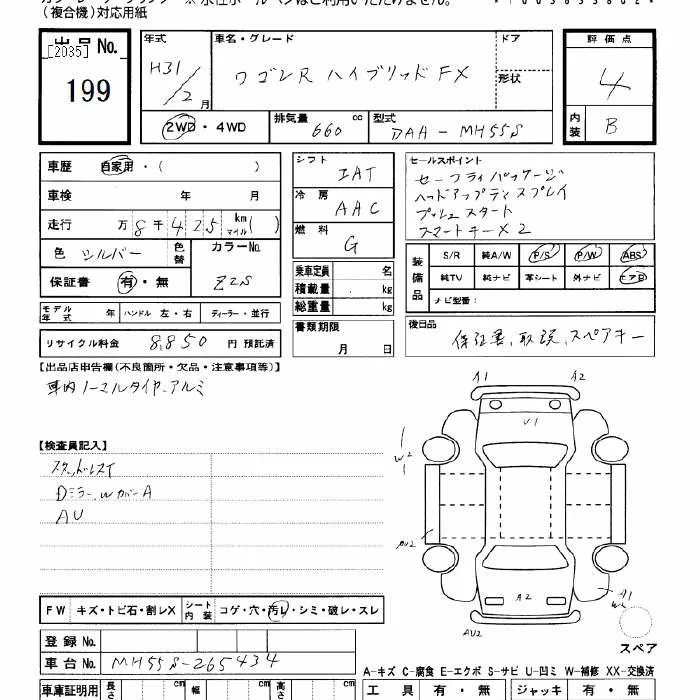 (複合機)対応用紙
出品No.
[2035]
199
年式
H31/2月
車名・グレード
ワゴンR ハイブリッド FX
ドア
形状
評価点
4
内装
B
2WD・4WD
排気量
660
cc
型式
DAA-MH55S
車歴
自家用・( )
車検
年 月
走行
万 8 千 4 2 5 km マイル( )
色
シルバー
色替
カラーNo.
Z2S
保証書
有・無
シフト
IAT
冷房
AAC
燃料
G
乗車定員
名
積載量
kg
総重量
kg
書類期限
月 日
セールスポイント
セーフティパッケージ
ヘッドアップディスプレイ
プッシュスタート
スマートキー×2
装備品
S/R 純A/W P/S P/W ABS
純TV 純ナビ 革シート 外ナビ エアB
ナビ型番:
モデル年式
年
ハンドル 左・右
ディーラー・並行
リサイクル料金
8,850 円 預託済
後日品
保証書、取説、スペアキー
【出品店申告欄(不良箇所・欠品・注意事項等)】
車内ノーマルタイヤ、アルミ
【検査員記入】
スタッドレスタイ
Dミラー、WカバーA
AU
A1
A2
U1
W2
AU2
A2
A1
AU2
スペア
FW キズ・トビ石・割レX
シート内装
コゲ・穴・汚レ・シミ・破レ・スレ
登録No.
車台No.
MH55S-265434
A-キズ C-腐食 E-エクボ S-サビ U-凹ミ W-補修 XX-交換済
車庫証明用
長さ
cm
幅
cm
高さ
cm
工具 有・無
ジャッキ 有・無